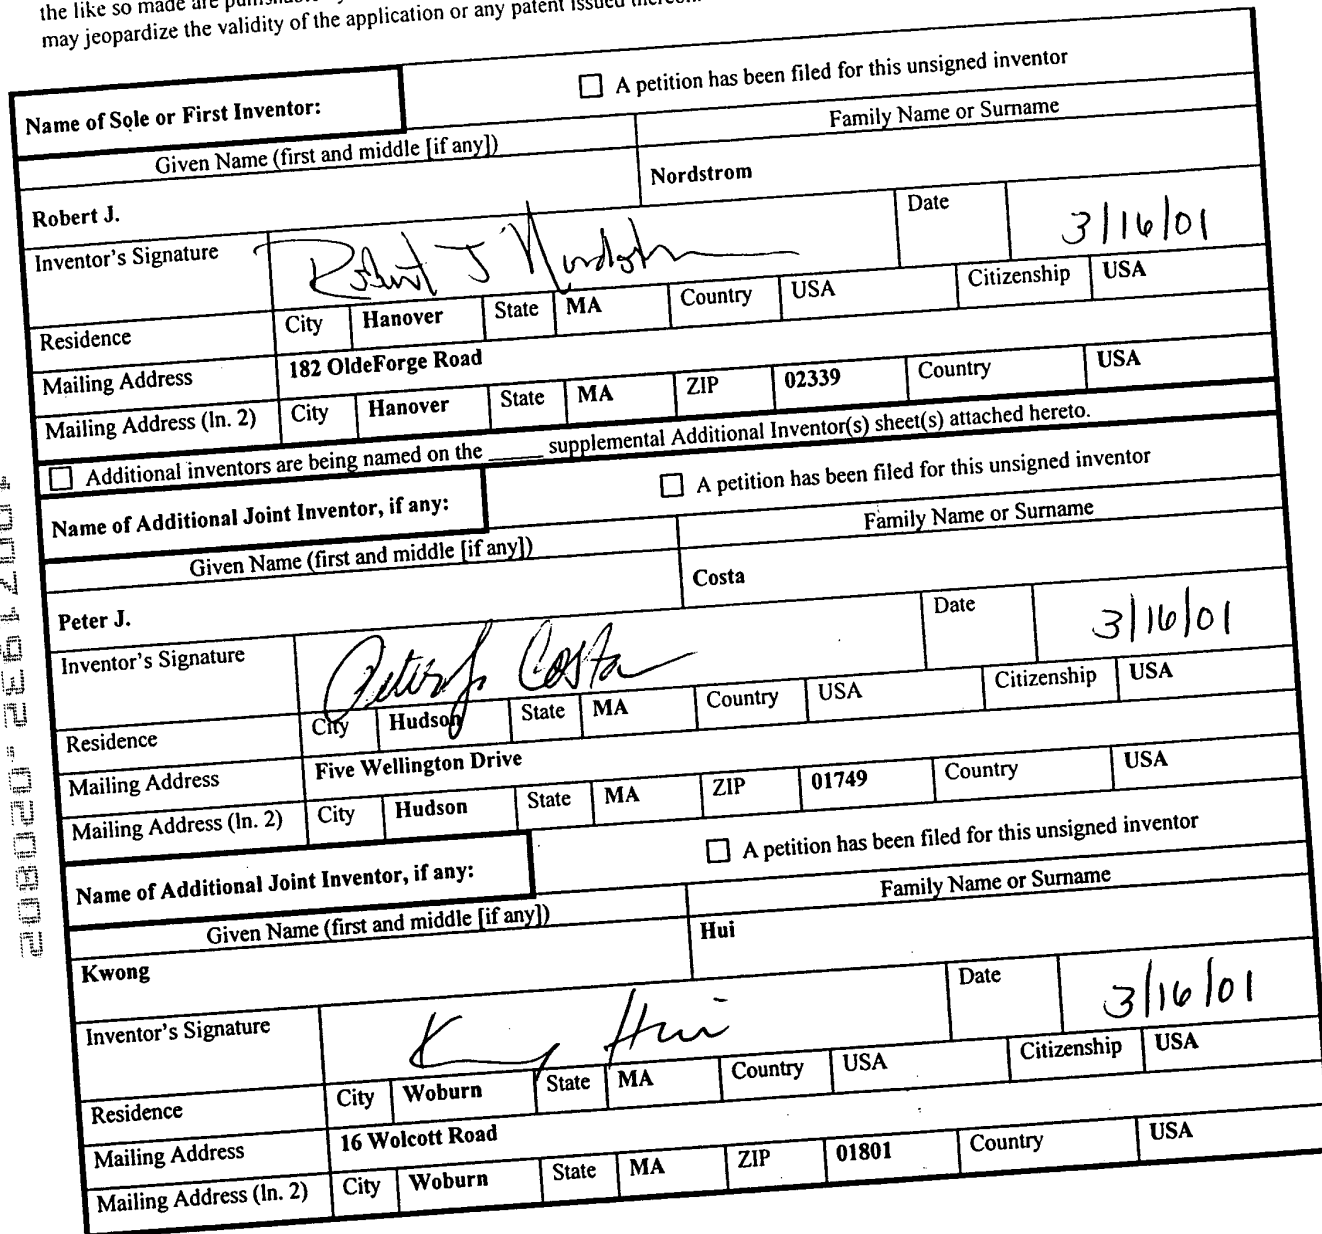 the like so made are
may jeopardize the validity of the application or any patent issued
Name of Sole or First Inventor:
☐ A petition has been filed for this unsigned inventor
Given Name (first and middle [if any])
Family Name or Surname
Robert J.
Nordstrom
Inventor's Signature
Robert J Nordstrom
Date
3/16/01
Residence
City Hanover State MA Country USA Citizenship USA
Mailing Address
182 OldeForge Road
Mailing Address (ln. 2) City Hanover State MA ZIP 02339 Country USA
☐ Additional inventors are being named on the _____ supplemental Additional Inventor(s) sheet(s) attached hereto.
Name of Additional Joint Inventor, if any:
☐ A petition has been filed for this unsigned inventor
Given Name (first and middle [if any])
Family Name or Surname
Peter J.
Costa
Inventor's Signature
Peter J. Costa
Date
3/16/01
Residence
City Hudson State MA Country USA Citizenship USA
Mailing Address
Five Wellington Drive
Mailing Address (ln. 2) City Hudson State MA ZIP 01749 Country USA
Name of Additional Joint Inventor, if any:
☐ A petition has been filed for this unsigned inventor
Given Name (first and middle [if any])
Family Name or Surname
Kwong
Hui
Inventor's Signature
Kwong Hui
Date
3/16/01
Residence
City Woburn State MA Country USA Citizenship USA
Mailing Address
16 Wolcott Road
Mailing Address (ln. 2) City Woburn State MA ZIP 01801 Country USA
10071932.020802